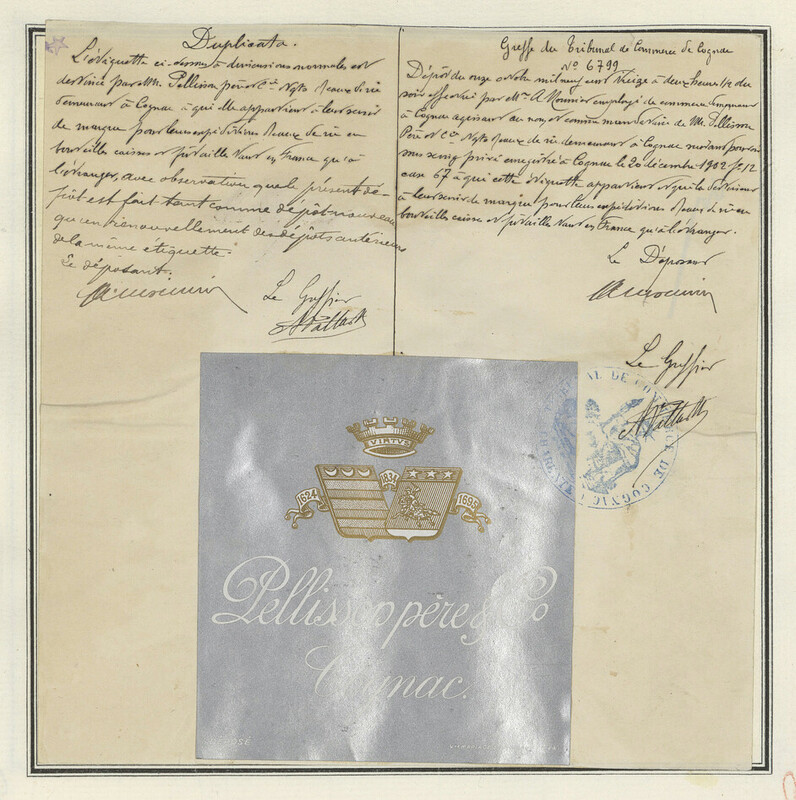 Duplicata.
L'étiquette ci-dessous à dimensions normales est
destinée par MM. Pellisson père et Cie Négts d'eaux de vie
demeurant à Cognac à qui elle appartient à leur servir
de marque pour leurs expéditions d'eaux de vie en
bouteilles caisses et futailles tant en France qu'à
l'étranger, avec observation que le présent dé-
pôt est fait tant comme dépôt nouveau
qu'en renouvellement des dépôts antérieurs
de la même étiquette.
Le déposant.
Le Greffier
Greffe du Tribunal de Commerce de Cognac
No 6799
Dépôt du onze octobre mil neuf cent treize à deux heures 1/2 du
soir effectué par Mr A. Mounier employé de commerce demeurant
à Cognac agissant au nom et comme mandataire de MM. Pellisson
Père et Cie Négts d'eaux de vie demeurant à Cognac suivant pouvoir
sous seing privé enregistré à Cognac le 20 décembre 1902 fo 12
case 67 à qui cette étiquette appartient et qui la destinent
à leur servir de marque pour leurs expéditions d'eaux de vie en
bouteilles caisses et futailles tant en France qu'à l'étranger.
Le Déposant
Le Greffier
VIRTVS
1624
1834
1695
Pellisson père & Co
Cognac.
DÉPOSÉ
TRIBUNAL DE COMMERCE DE COGNAC